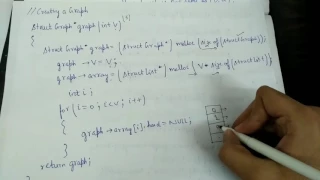 // Creating a Graph
Struct Graph* graph (int V)
{
Struct Graph* graph = (Struct Graph*) malloc (size of (Struct Graph));
graph → V = V;
graph → array = (Struct List*) malloc (V * size of (Struct List))
int i;
for (i = 0; i < V; i++)
{
graph → array [i]. head = NULL;
}
return graph;
0
1